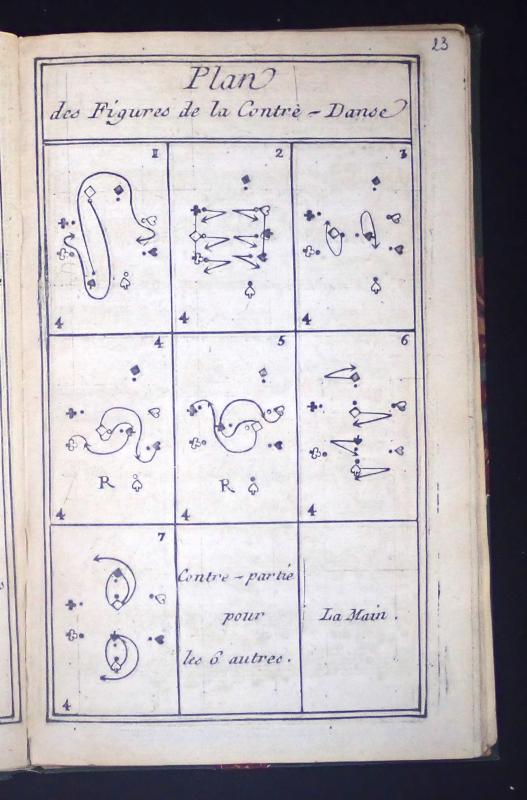 23
Plan
des Figures de la Contrè - Danse
1
2
3
4
4
4
4
5
6
R
R
4
4
4
7
Contre - partie
pour
les 6 autres.
La Main.
4